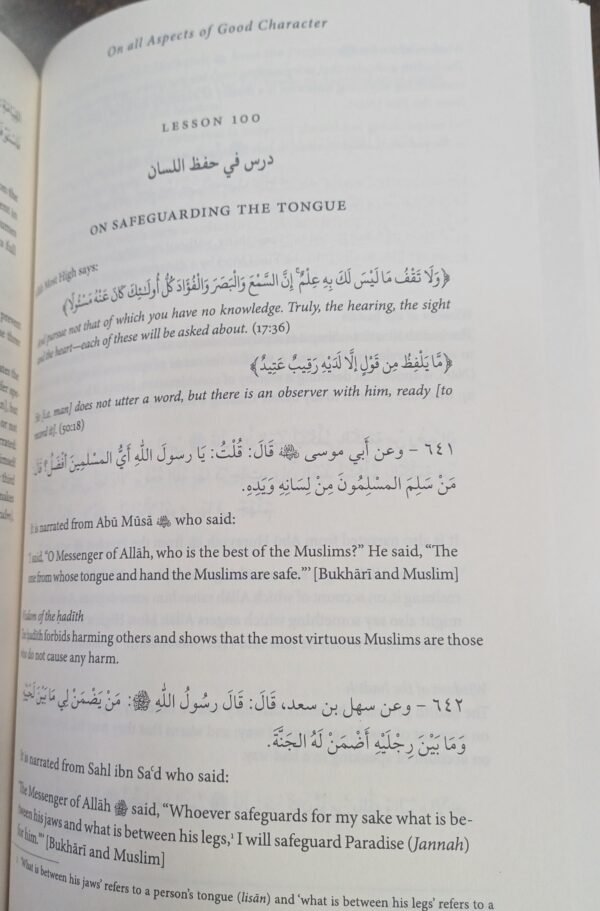 On all Aspects of Good Character
LESSON 100
درس في حفظ اللسان
ON SAFEGUARDING THE TONGUE
Most High says:
﴿وَلَا تَقْفُ مَا لَيْسَ لَكَ بِهِ عِلْمٌ ۚ إِنَّ السَّمْعَ وَالْبَصَرَ وَالْفُؤَادَ كُلُّ أُولَـٰئِكَ كَانَ عَنْهُ مَسْئُولًا﴾
And pursue not that of which you have no knowledge. Truly, the hearing, the sight
and the heart—each of these will be asked about. (17:36)
﴿مَّا يَلْفِظُ مِن قَوْلٍ إِلَّا لَدَيْهِ رَقِيبٌ عَتِيدٌ﴾
He [i.e. man] does not utter a word, but there is an observer with him, ready [to
record it]. (50:18)
٦٤١ – وعن أَبي موسى ﷺ قَالَ: قُلْتُ: يَا رسولَ اللهِ أَيُّ المسْلِمِينَ أفْضَلُ؟ قَالَ
مَنْ سَلِمَ المسْلِمُونَ مِنْ لِسَانِهِ وَيَدِهِ.
It is narrated from Abū Mūsā who said:
"I said, "O Messenger of Allāh, who is the best of the Muslims?" He said, "The
one from whose tongue and hand the Muslims are safe."' [Bukhārī and Muslim]
Wisdom of the ḥadīth
The ḥadīth forbids harming others and shows that the most virtuous Muslims are those
who do not cause any harm.
٦٤٢ – وعن سهل بن سعد، قَالَ: قَالَ رسُولُ اللهِ ﷺ: مَنْ يَضْمَنْ لِي مَا بَيْنَ لَحْيَيْهِ
وَمَا بَيْنَ رِجْلَيْهِ أَضْمَنْ لَهُ الجَنَّةَ.
It is narrated from Sahl ibn Saʿd who said:
'The Messenger of Allāh ﷺ said, "Whoever safeguards for my sake what is be-
tween his jaws and what is between his legs,¹ I will safeguard Paradise (Jannah)
for him."' [Bukhārī and Muslim]
1 'What is between his jaws' refers to a person's tongue (lisān) and 'what is between his legs' refers to a